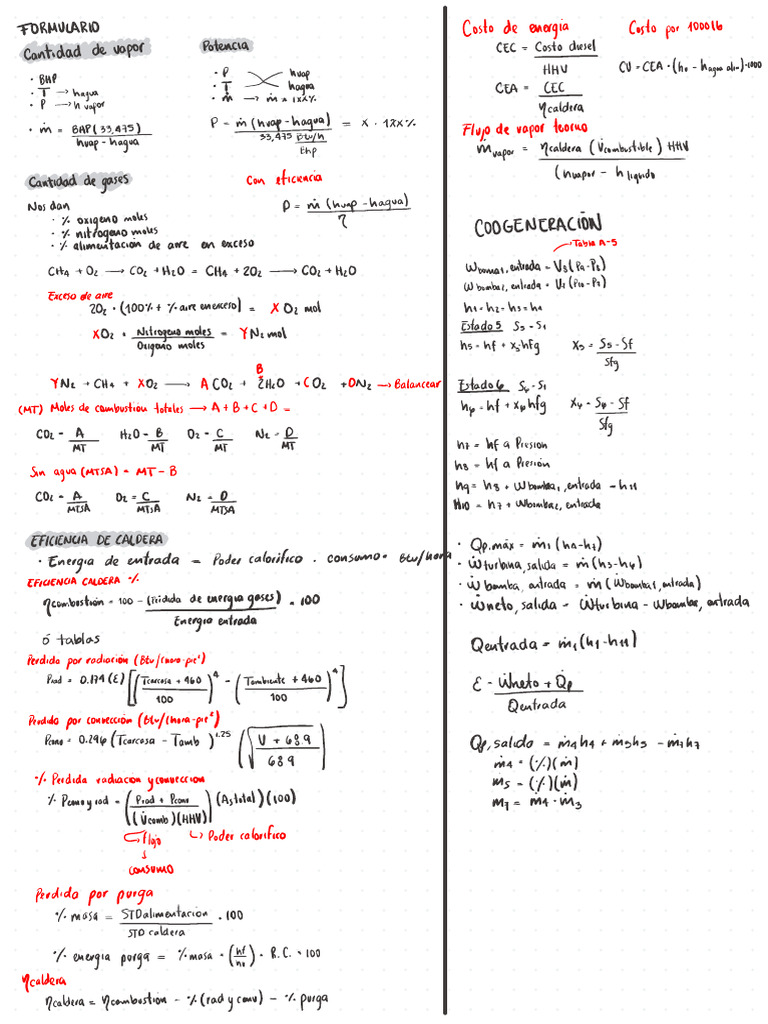 FORMULARIO
Cantidad de vapor
· BHP
· T → hagua
· P → h vapor
· ṁ = BHP (33,475) / hvap - hagua
Potencia
· P hvap
· T hagua
· ṁ → ṁ × 1XX%
P = ṁ (hvap - hagua) / 33,475 Btu/h / Bhp = X · 1XX%
Cantidad de gases
Nos dan
· % oxigeno moles
· % nitrogeno moles
· % alimentación de aire en exceso
Con eficiencia
P = ṁ (hvap - hagua) / η
CH4 + O2 → CO2 + H2O = CH4 + 2O2 → CO2 + H2O
Exceso de aire
2O2 · (100% + % aire en exceso) = X O2 mol
XO2 · Nitrogeno moles / Oxigeno moles = Y N2 mol
YN2 + CH4 + XO2 → A CO2 + B 2H2O + C O2 + D N2 → Balancear
(MT) Moles de combustion totales → A + B + C + D =
CO2 = A / MT H2O = B / MT O2 = C / MT N2 = D / MT
Sin agua (MTSA) = MT - B
CO2 = A / MTSA O2 = C / MTSA N2 = D / MTSA
EFICIENCIA DE CALDERA
· Energia de entrada = Poder calorifico · consumo = Btu/hora
EFICIENCIA CALDERA %
ηcombustión = 100 - (Pérdida de energía gases) / Energia entrada · 100
ó tablas
Perdida por radiación (Btu/hora-pie²)
Prad = 0.174 (E) [(Tcarcasa + 460 / 100)⁴ - (Tambiente + 460 / 100)⁴]
Perdida por convección (Btu/hora-pie²)
Pconv = 0.296 (Tcarcasa - Tamb)^1.25 (√ V + 68.9 / 68.9)
% Perdida radiacion y conveccion
% Pconv y rad = (Prad + Pconv / (V̇comb)(HHV)) (As total) (100)
→ Flujo → Poder calorifico
↓
consumo
Perdida por purga
% masa = STD alimentacion / STD caldera · 100
% energia purga = % masa · (hf / hv) · R.C. · 100
ηcaldera
ηcaldera = ηcombustion - % (rad y conv) - % purga
Costo de energia
CEC = Costo diesel / HHV
CEA = CEC / ηcaldera
Costo por 1000 lb
CV = CEA · (hv - hagua alim) · 1000
Flujo de vapor teorico
ṁvapor = ηcaldera (V̇combustible) HHV / (hvapor - hliquido)
COOGENERACIÓN
→ Tabla A-5
Wbomba1, entrada = V8 (P9 - P8)
Wbomba2, entrada = V7 (P10 - P7)
h1 = h2 = h3 = h4
Estado 5 S5 = S1
h5 = hf + x5 · hfg x5 = S5 - Sf / Sfg
Estado 6 S6 = S1
h6 = hf + x6 hfg x6 = S6 - Sf / Sfg
h7 = hf a Presion
h8 = hf a Presión
h9 = h8 + Wbomba1, entrada = h11
H10 = h7 + Wbomba2, entrada
· Qp,máx = ṁ1 (h1 - h7)
· Ẇturbina, salida = ṁ (h3 - h6)
· Ẇ bomba, entrada = ṁ (Wbomba1, entrada)
· Ẇneto, salida = Ẇturbina - Wbomba, entrada
Qentrada = ṁ1 (h1 - h11)
ε = Ẇneto + Q̇p / Qentrada
Qp, salida = ṁ4h4 + ṁ5h5 - ṁ7h7
ṁ4 = (%)(ṁ)
ṁ5 = (%)(ṁ)
ṁ7 = ṁ4 · ṁ3